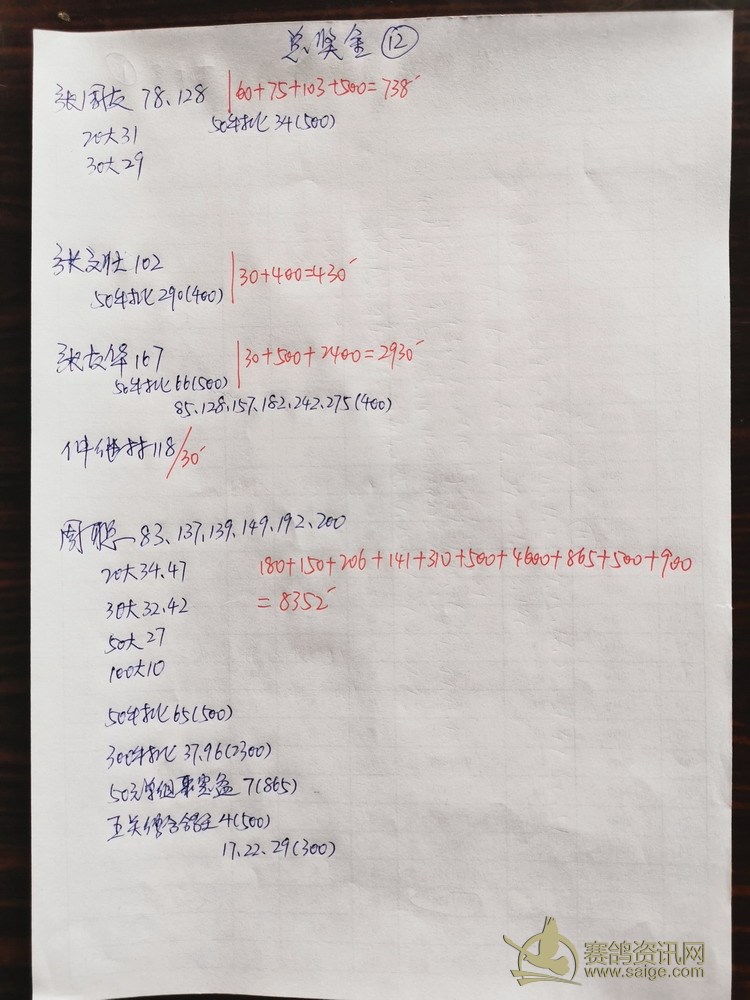 总奖金 ⑫
张国友 78、128 60+75+103+500=738
50单挑 34(500)
20大31
30大29
张文壮 102 30+400=430
50单挑 290(400)
张友华 167 30+500+2400=2930
50单挑 66(500)
85、128、157、182、242、275(400)
118/30
周聪 83、137、139、149、192、200
180+150+206+141+310+500+4600+865+500+900
=8352
20大34、47
30大32、42
50大27
100大10
50单挑 65(500)
300单挑 37、96(2300)
50元单组 7(865)
五关 4(500)
17、22、29(300)
赛鸽资讯网
www.saige.com